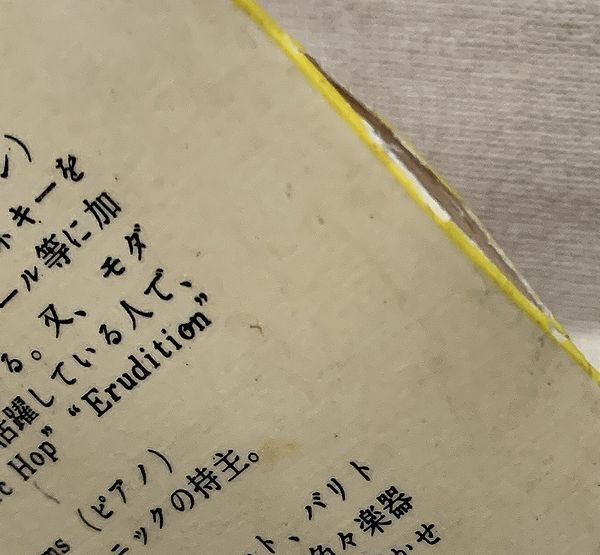 ン）
ネキーを
ール等に加
る。又、モダ
活躍している人で、
ic Hop” “Erudition”
ms （ピアノ）
ニックの持主。
ト、バリト
色々楽器
かせ